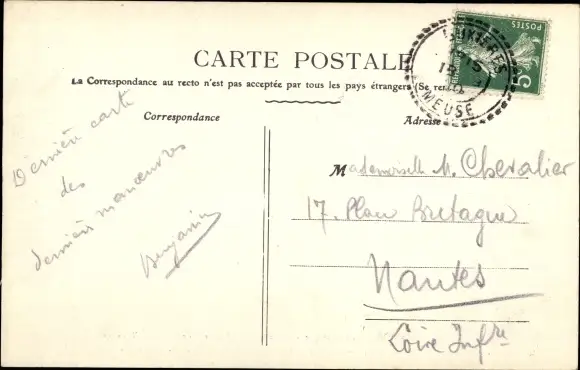 CARTE POSTALE
La Correspondance au recto n'est pas acceptée par tous les pays étrangers (Se
Correspondance
Adresse
Dernière carte
des
dernières manœuvres
Benjamin
Mademoiselle M. Chevalier
17. Place Bretagne
Nantes
Loire Infre
MEUSE
POSTES
5